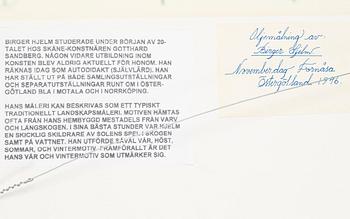 BIRGER HJELM STUDERADE UNDER BÖRJAN AV 20-
TALET HOS SKÅNE-KONSTNÄREN GOTTHARD
SANDBERG. NÅGON VIDARE UTBILDNING INOM
KONSTEN BLEV ALDRIG AKTUELLT FÖR HONOM. HAN
RÄKNAS IDAG SOM AUTODIDAKT (SJÄLVLÄRD). HAN
HAR STÄLLT UT PÅ BÅDE SAMLINGSUTSTÄLLNINGAR
OCH SEPARATUTSTÄLLNINGAR RUNT OM I ÖSTER-
GÖTLAND BLA I MOTALA OCH I NORRKÖPING.
HANS MÅLERI KAN BESKRIVAS SOM ETT TYPISKT
TRADITIONELLT LANDSKAPSMÅLERI. MOTIVEN HÄMTAS
OFTA FRÅN HANS HEMBYGD MESTADELS FRÅN VARV
OCH LÅNGSKOGEN. I SINA BÄSTA STUNDER VAR HJELM
EN SKICKLIG SKILDRARE AV SOLENS SPEL I SKOGEN
SAMT PÅ VATTNET. HAN UTFÖRDE SÅVÄL VÅR, HÖST,
SOMMAR, OCH VINTERMOTIV. FRAMFÖRALLT ÄR DET
HANS VÅR OCH VINTERMOTIV SOM UTMÄRKER SIG.
Oljemålning av
Birger Hjelm
Novemberdag Fornåsa
Östergötland 1946.